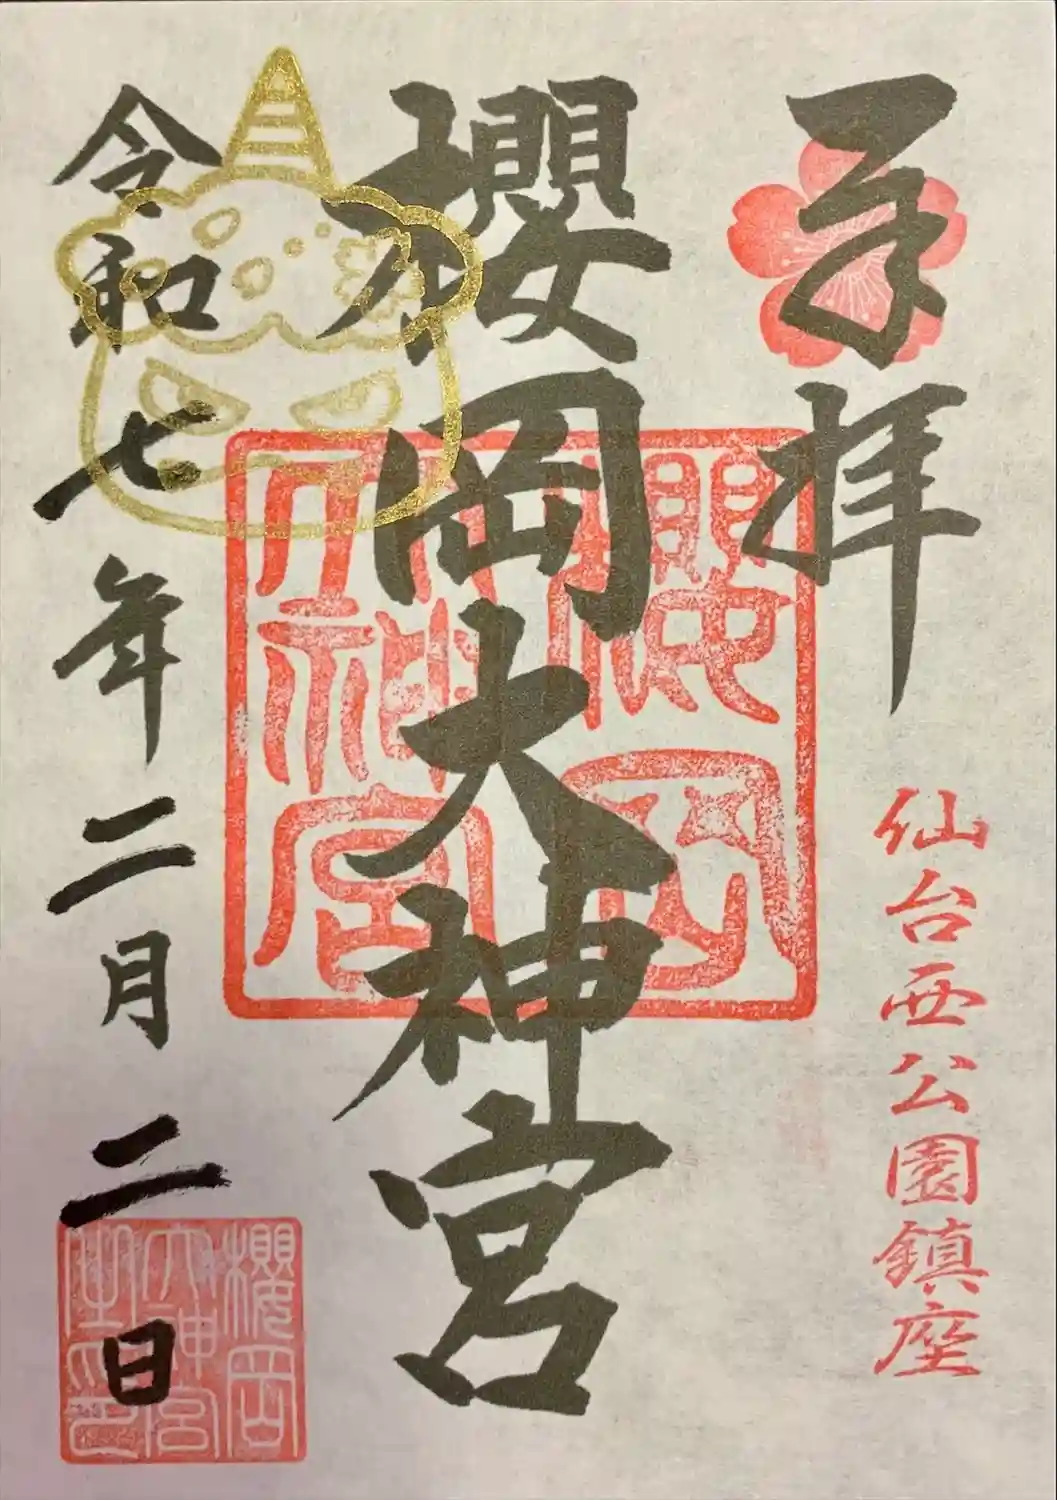 奉拝
仙台西公園鎮座
櫻岡大神宮
櫻岡
大神宮
令和七年二月二日
櫻岡
大神宮
御印